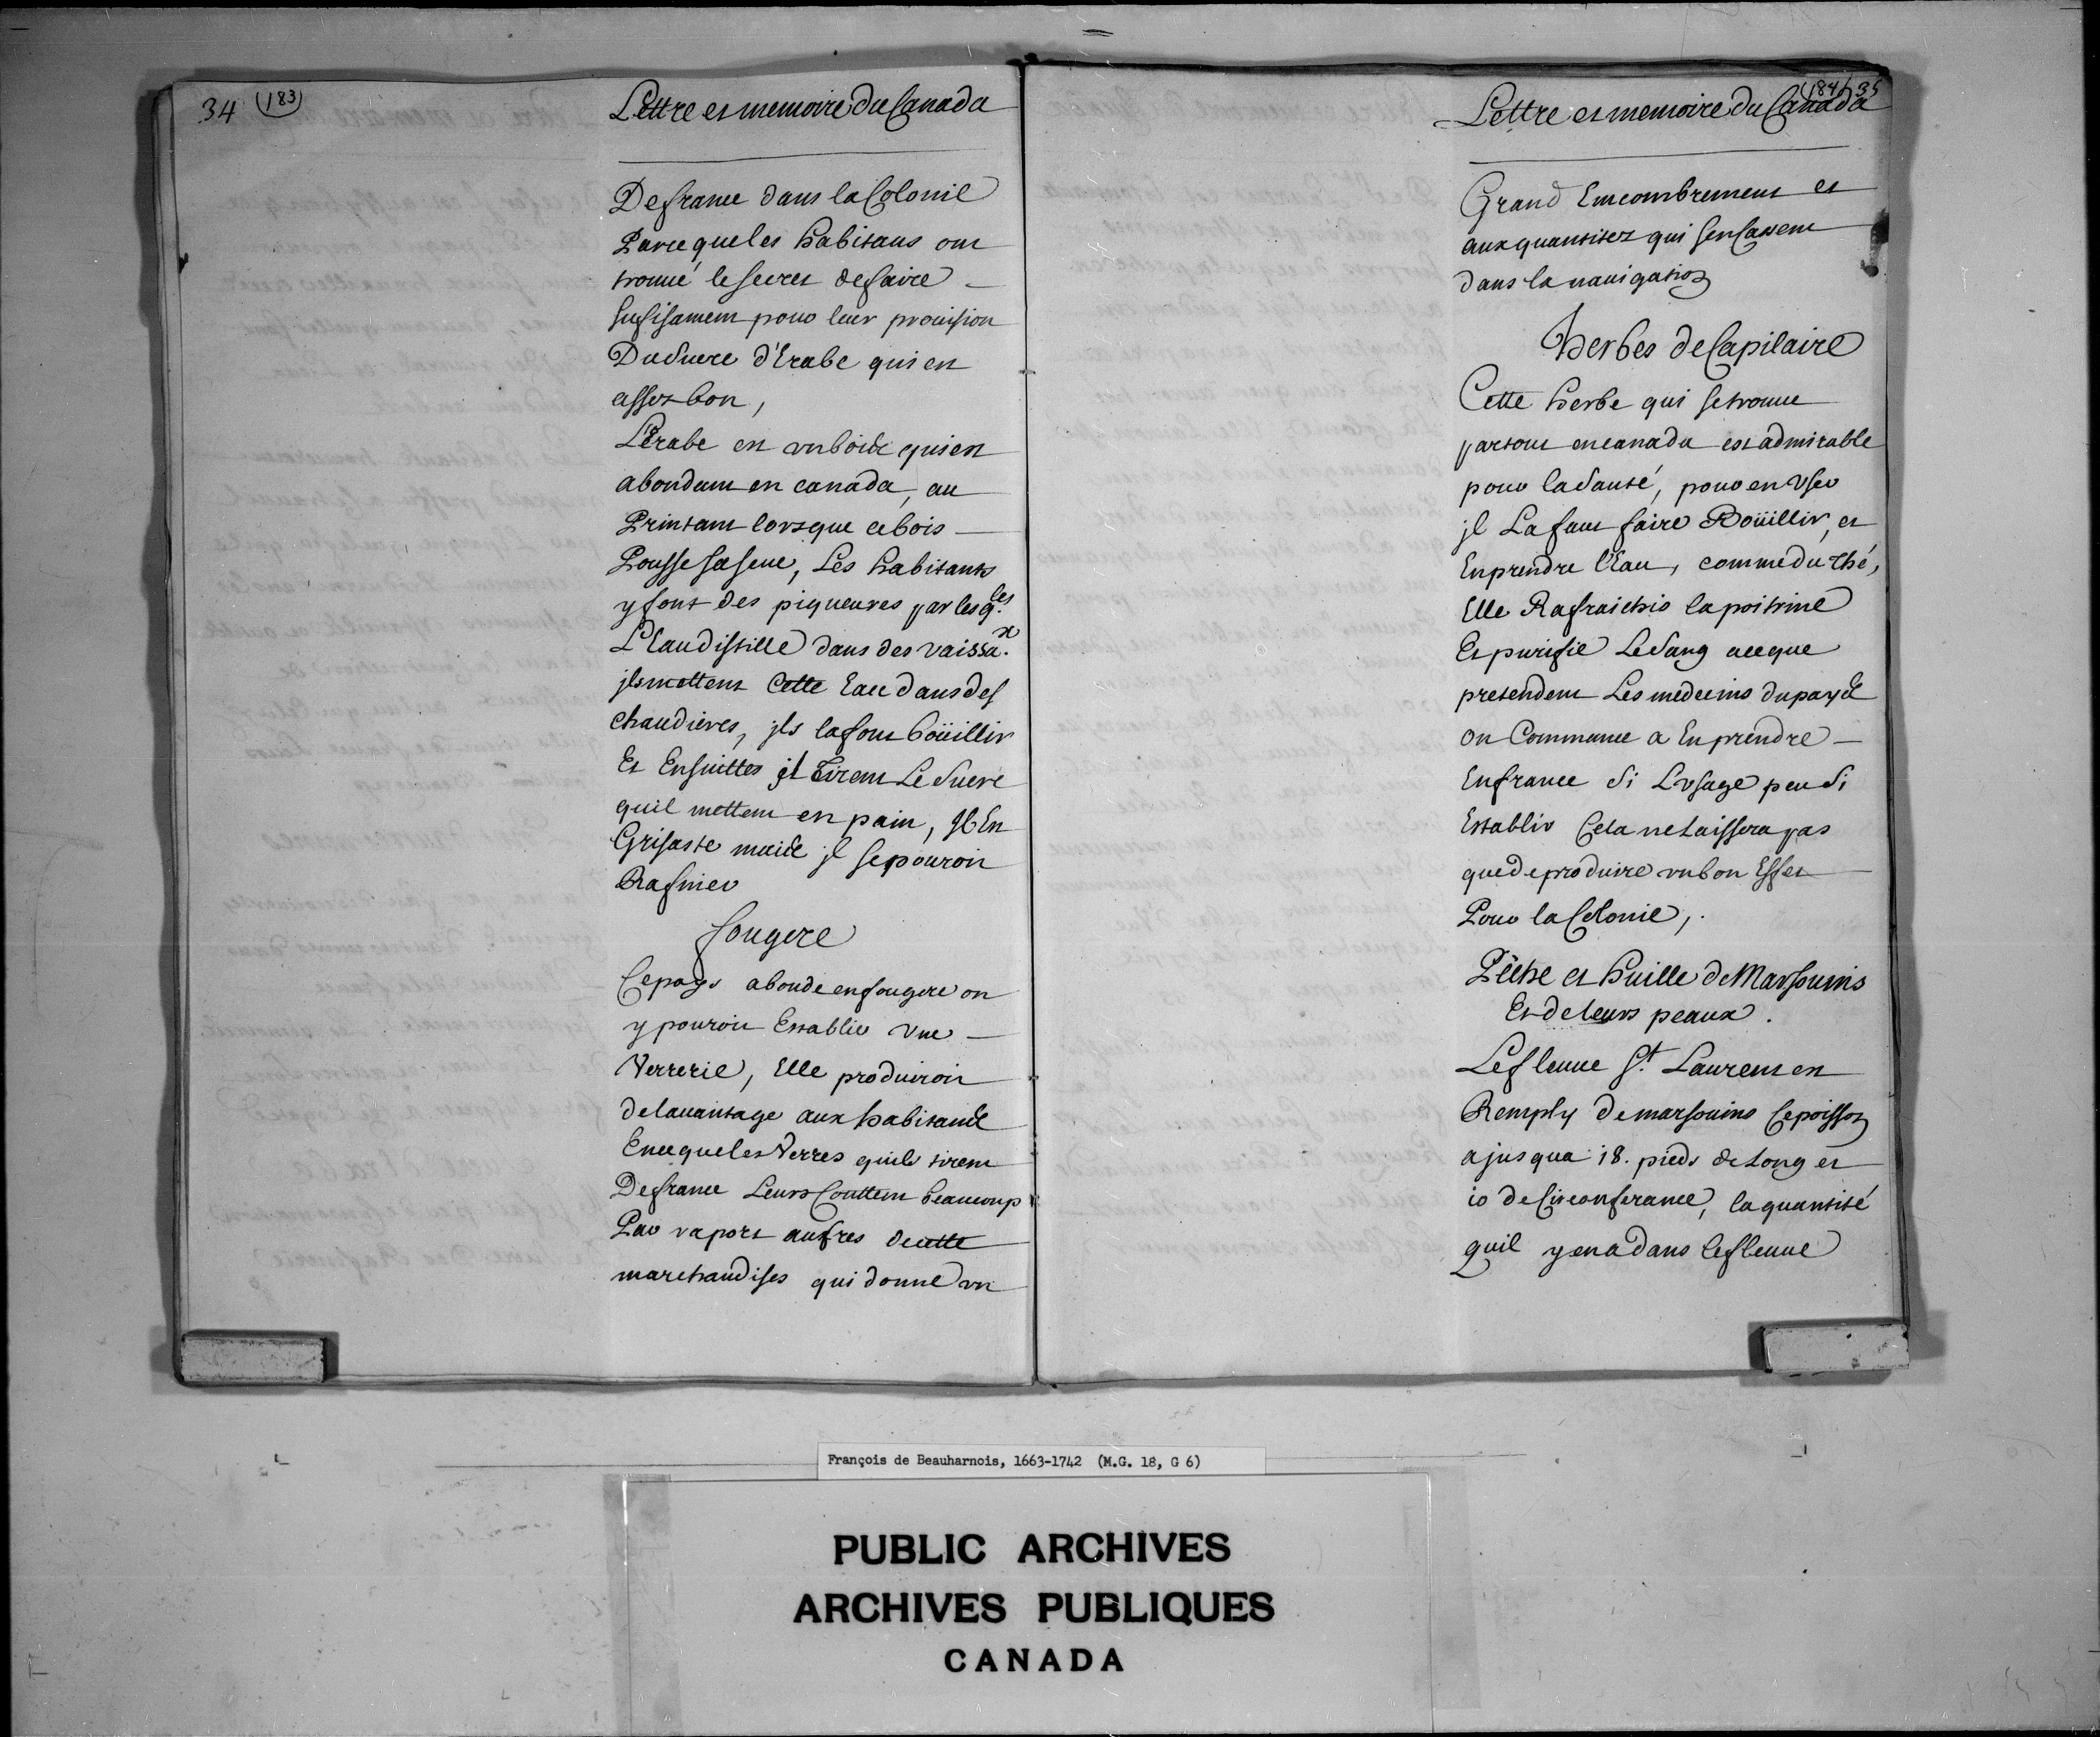 34 (183)
Lettre et memoire du Canada
De france dans la Colonie
Parce que les habitans ont
trouué le secret de faire
sufisament pour leur prouision
Du sucre d'Erabe qui est
assez bon,
L'Erabe est un bois qui est
abondant en canada, au
Printans lorsque ce bois
Pousse sa seue, Les habitants
y font des piqueures par lesq.les
L'Eau distille dans des vaissa.x
jls mettent Cette Eau dans des
chaudieres, jls la font boüillir
Et Ensuittes jl tirent Le sucre
quil mettent en pain, Jl Est
Grisaste mais jl se pouroit
Rafiner
fougere
Ce pays abonde en fougere on
y pouroit Establir vne
Verrerie, Elle produiroit
de lauantage aux habitans
En ce que les Verres quils tirent
De france Leurs Couttent beaucoup
Par raport au fres de cette
marchandises qui donne un
(184) 35
Lettre et memoire du Canada
Grand Emcombrement et
aux quantitez qui sen Cassent
dans la nauigation
Herbes de Capilaire
Cette herbe qui se trouue
partout en canada est admirable
pour la Santé, pour en Vser
jl La faut faire Boüillir, et
En prendre l'Eau, comme du thé,
Elle Rafraichis la poitrine
Et purifie Le Sang a ce que
pretendent Les medecins du pays
on Commance a En prendre
En france Si L'vsage peu Si
Establir Cela ne Laissera pas
que de produire un bon Effet
Pour la Colonie,.
Pêche et huille de Marsouins
Et de leurs peaux.
Le fleuue St. Laurens est
Remply de marsouins Ce poisson
a jusqua 18. pieds de Long et
10 de Circonferance, la quantité
quil y en a dans le fleuue
François de Beauharnois, 1663-1742 (M.G. 18, G 6)
PUBLIC ARCHIVES
ARCHIVES PUBLIQUES
CANADA